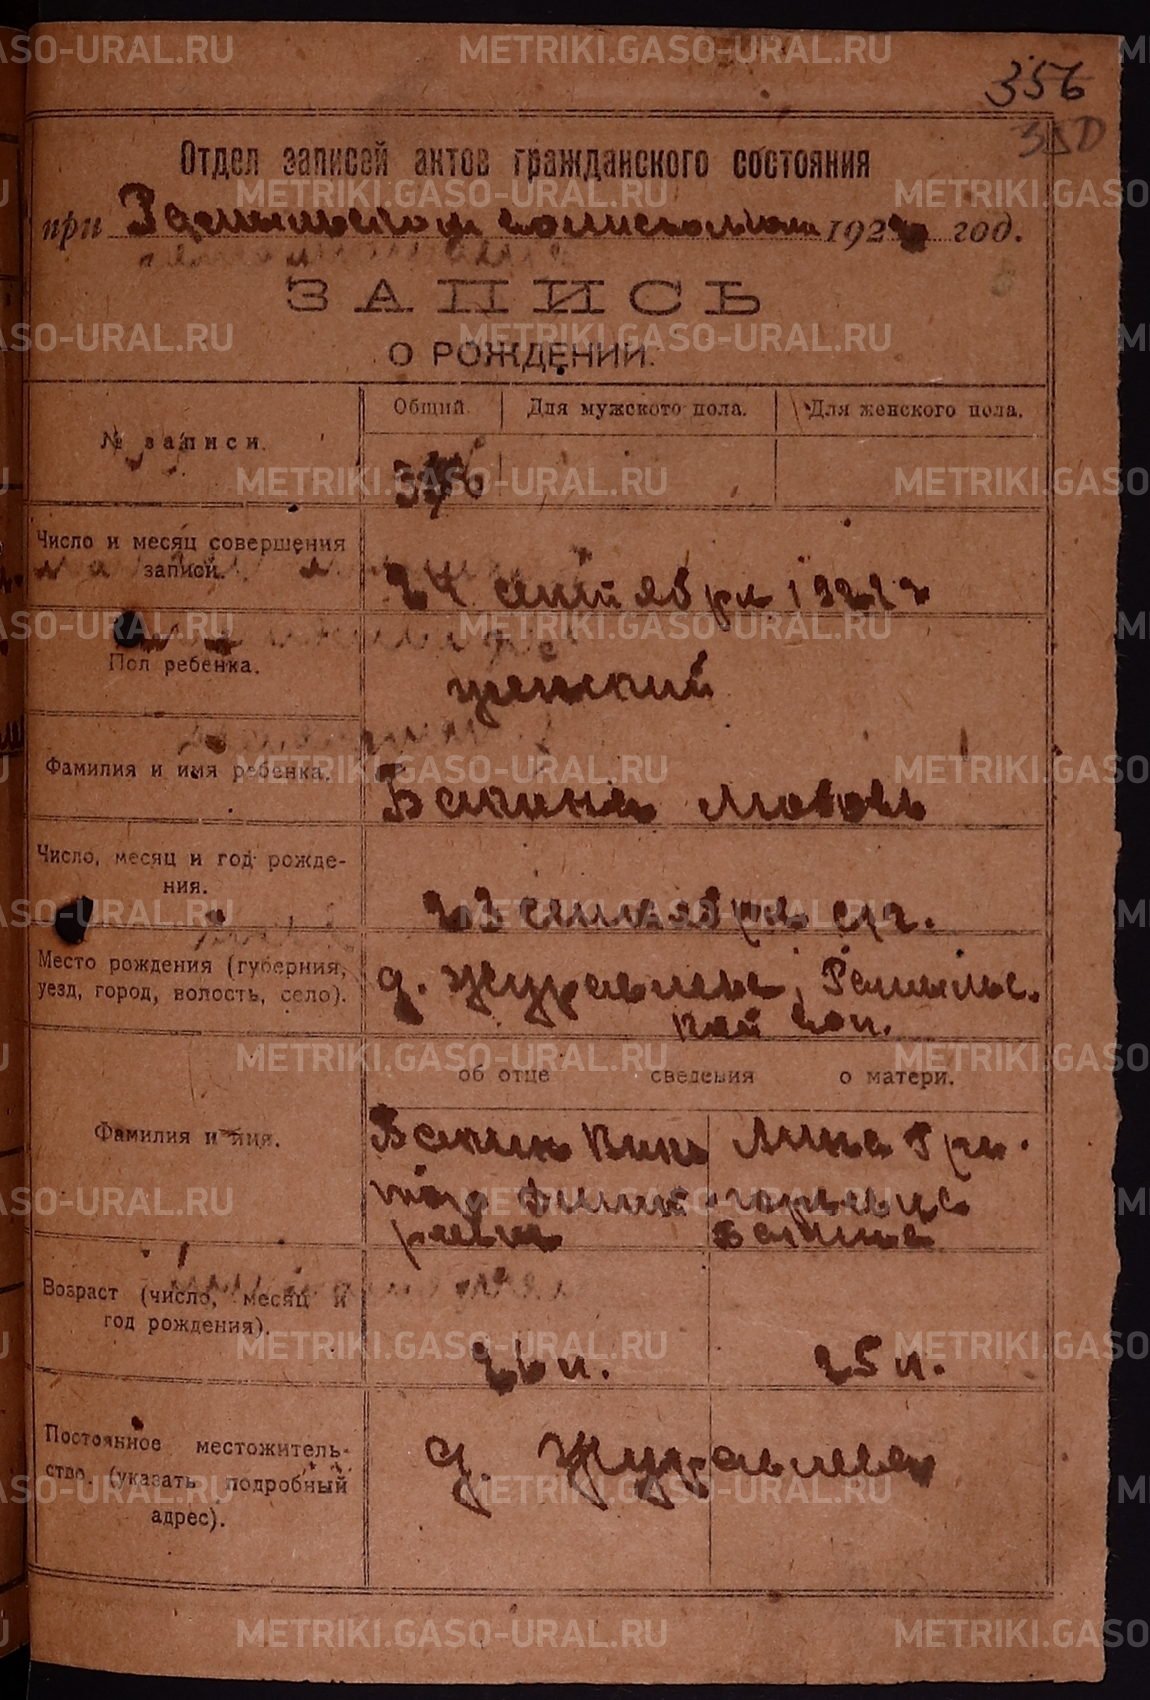 356
350
Отдел записей актов гражданского состояния
при волисполком 192 год.
ЗАПИСЬ
О РОЖДЕНИИ.
№ записи.
Общий.
Для мужского пола.
Для женского пола.
356
Число и месяц совершения
записи.
24 сентября 1922 г
Пол ребенка.
женский
Фамилия и имя ребенка.
Бакина Любовь
Число, месяц и год рожде-
ния.
23 сентября с/г.
Место рождения (губерния,
уезд, город, волость, село).
д. Журавлева,
кой вол.
об отце сведения о матери.
Фамилия и имя.
Бакин
Анна Гри-
горьевна
Бакина
Возраст (число, месяц и
год рождения).
26 л.
25 л.
Постоянное местожитель-
ство. (указать подробный
адрес).
д. Журавлева
METRIKI.GASO-URAL.RU